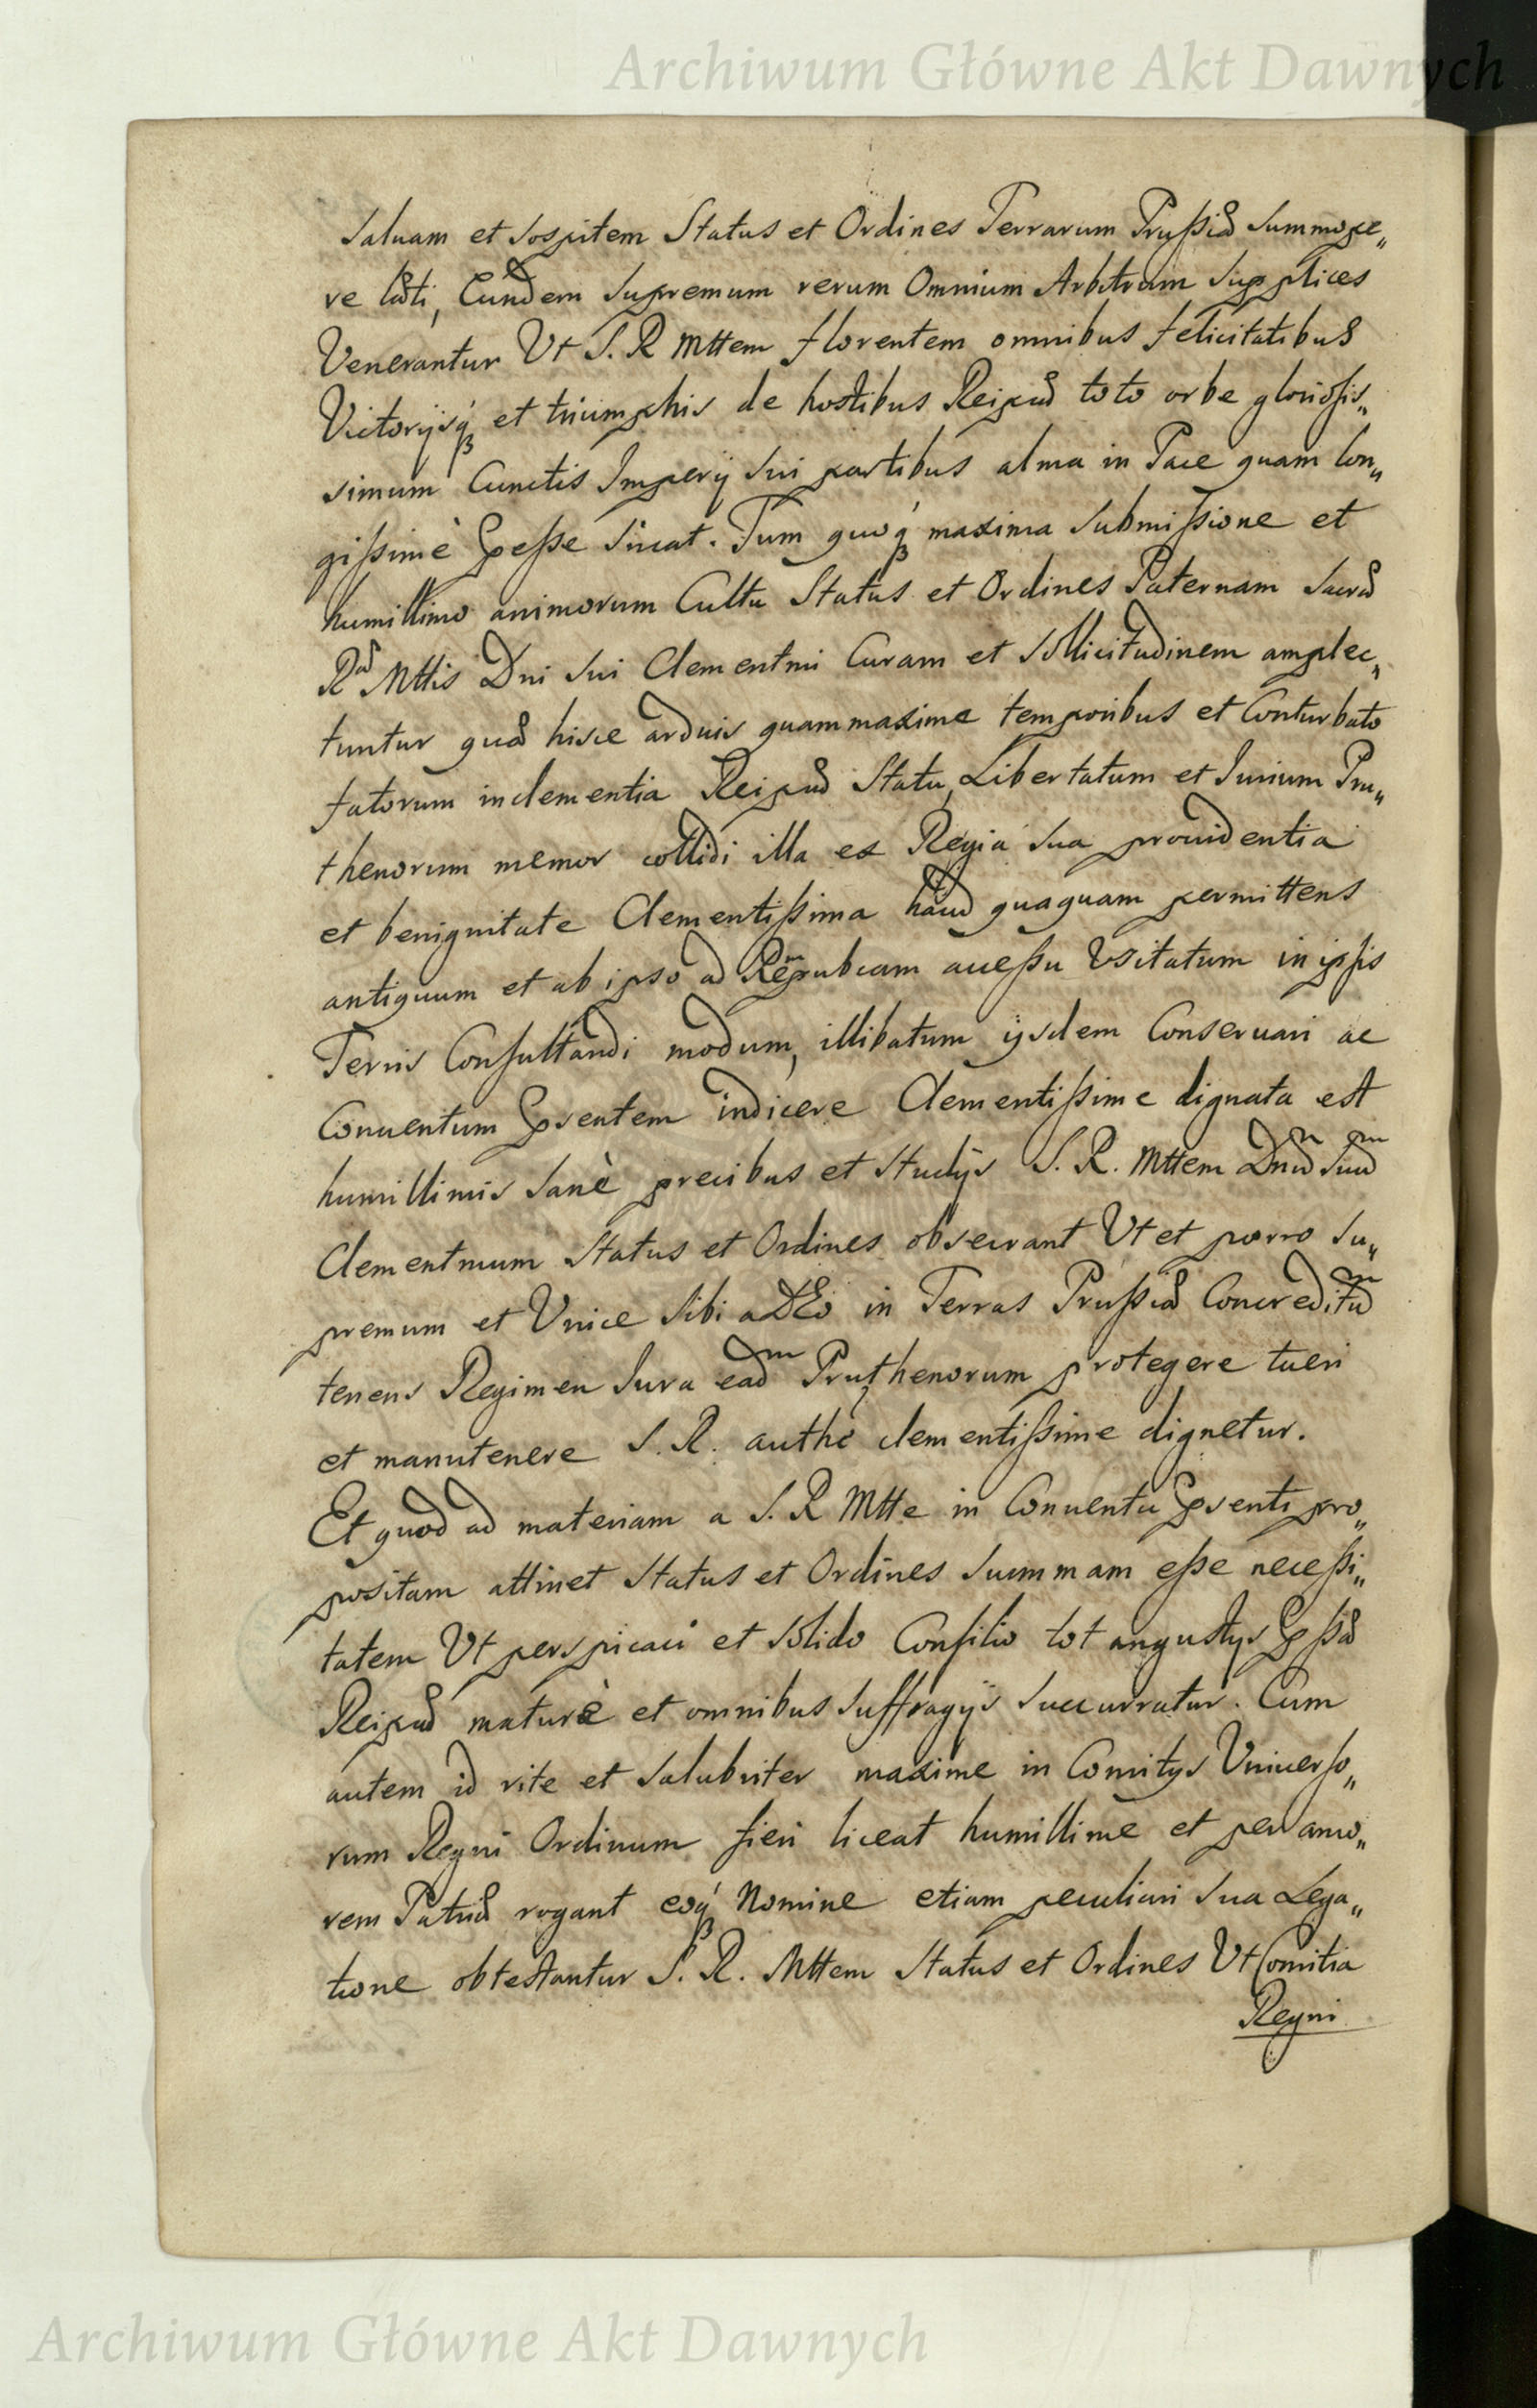 Archiwum Główne Akt Dawnych
saluam et sospitem Status et Ordines Terrarum Prußiæ summope„
re læti, Eundem supremum rerum Omnium Arbitrum supplices
Venerantur Vt S. R Mttem florentem omnibus felicitatibus
Victorijsq́ꝫ et triumphis de hostibus Reipuæ toto orbe gloriosis„
simum Cunctis Imperij sui partibus alma in Pace quam lon„
gißimè Ꝓeße sinat. Tum quoq́ꝫ maxima submißione et
humillimo animorum Cultu Status et Ordines Paternam Sacræ
Ræ Mttis Dni sui Clementmi Curam et sollicitudinem amplec„
tuntur quæ hisce arduis quam maxime temporibus et Conturbato
fatorum inclementia Reipuæ Statu, Libertatum et Iurium Pru„
thenorum memor collidi illa ex Regia sua prouidentia
et benignitate Clementißima haud quaquam permittens
antiquum et ab ipso ad Rempubcam acceßu Vsitatum in ipsis
Terris Consultandi modum, illibatum ijsdem Conseruari ac
Conuentum Ꝓsentem indicere Clementißime dignata est
humillimis sanè precibus et studijs S. R. Mttem Dnum suum
Clementmum Status et Ordines obsecrant Vt et porro su„
premum et Vnice sibi a DEo in Terras Prußiæ Concreditum
tenens Regimen Iura eadm Pruthenorum protegere tueri
et manutenere S. R. authe clementißime dignetur.
Et quod ad materiam a S. R Mtte in Conuentu Ꝓsenti pro„
positam attinet Status et Ordines summam eße neceßi„
tatem Vt perspicaci et solido Consilio tot angustijs Ꝓßæ
Reipuæ maturè et omnibus suffragijs succurratur. Cum
autem id rite et salubriter maxime in Comitijs Vniuerso„
rum Regni Ordinum fieri liceat humillime et per amo„
rem Patriæ rogant eoq́ꝫ Nomine etiam peculiari sua Lega„
tione obtestantur S. R. Mttem Status et Ordines Vt Comitia
Regni
Archiwum Główne Akt Dawnych